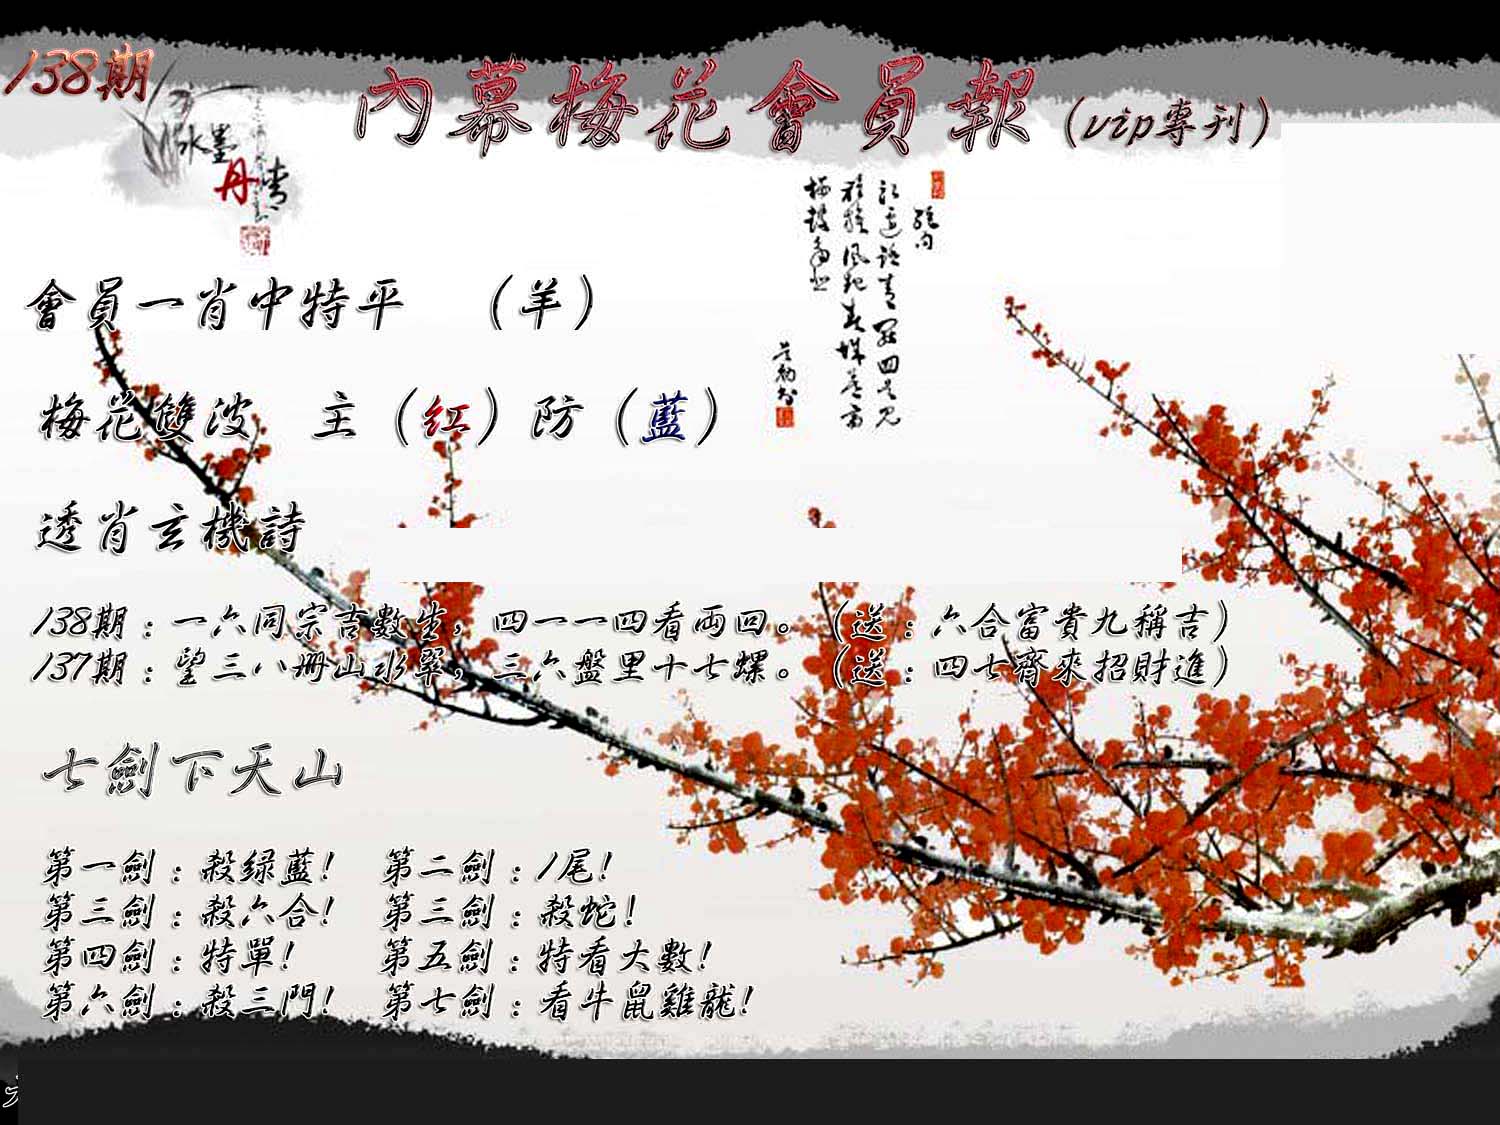 138期
內幕梅花會員報（vip專刊）
水墨
丹青
絕句
會員一肖中特平　（羊）
梅花雙波　主（紅）防（藍）
透肖玄機詩
138期：一六同宗吉數生，四一一四看兩回。（送：六合富貴九稱吉）
137期：望三八册山水翠，三六盤里十七螺。（送：四七齊來招財進）
七劍下天山
第一劍：殺绿藍!　第二劍：1尾!
第三劍：殺六合!　第三劍：殺蛇!
第四劍：特單!　第五劍：特看大數!
第六劍：殺三門!　第七劍：看牛鼠雞龍!